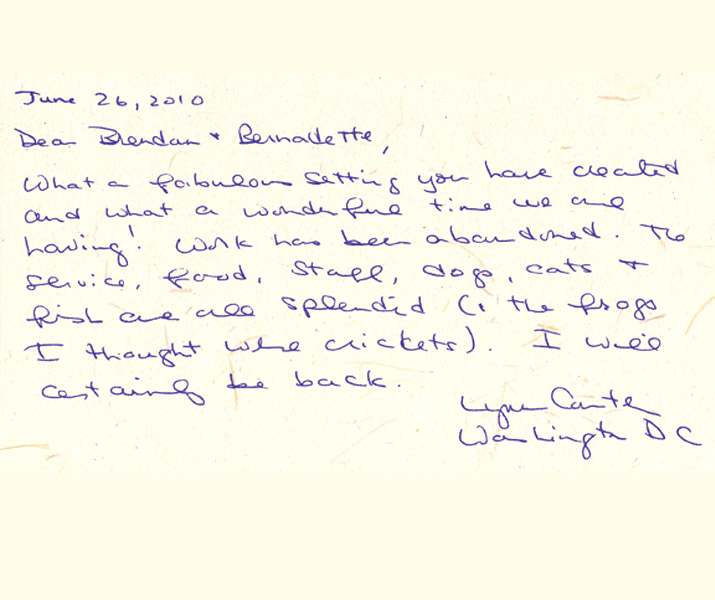 June 26, 2010
Dear Brendan + Bernadette,
What a fabulous setting you have created
and what a wonderful time we are
having! Work has been abandoned. The
service, food, staff, dogs, cats +
fish are all splendid (+ the frogs
I thought were crickets). I will
certainly be back.
Lynn Carter
Washington DC